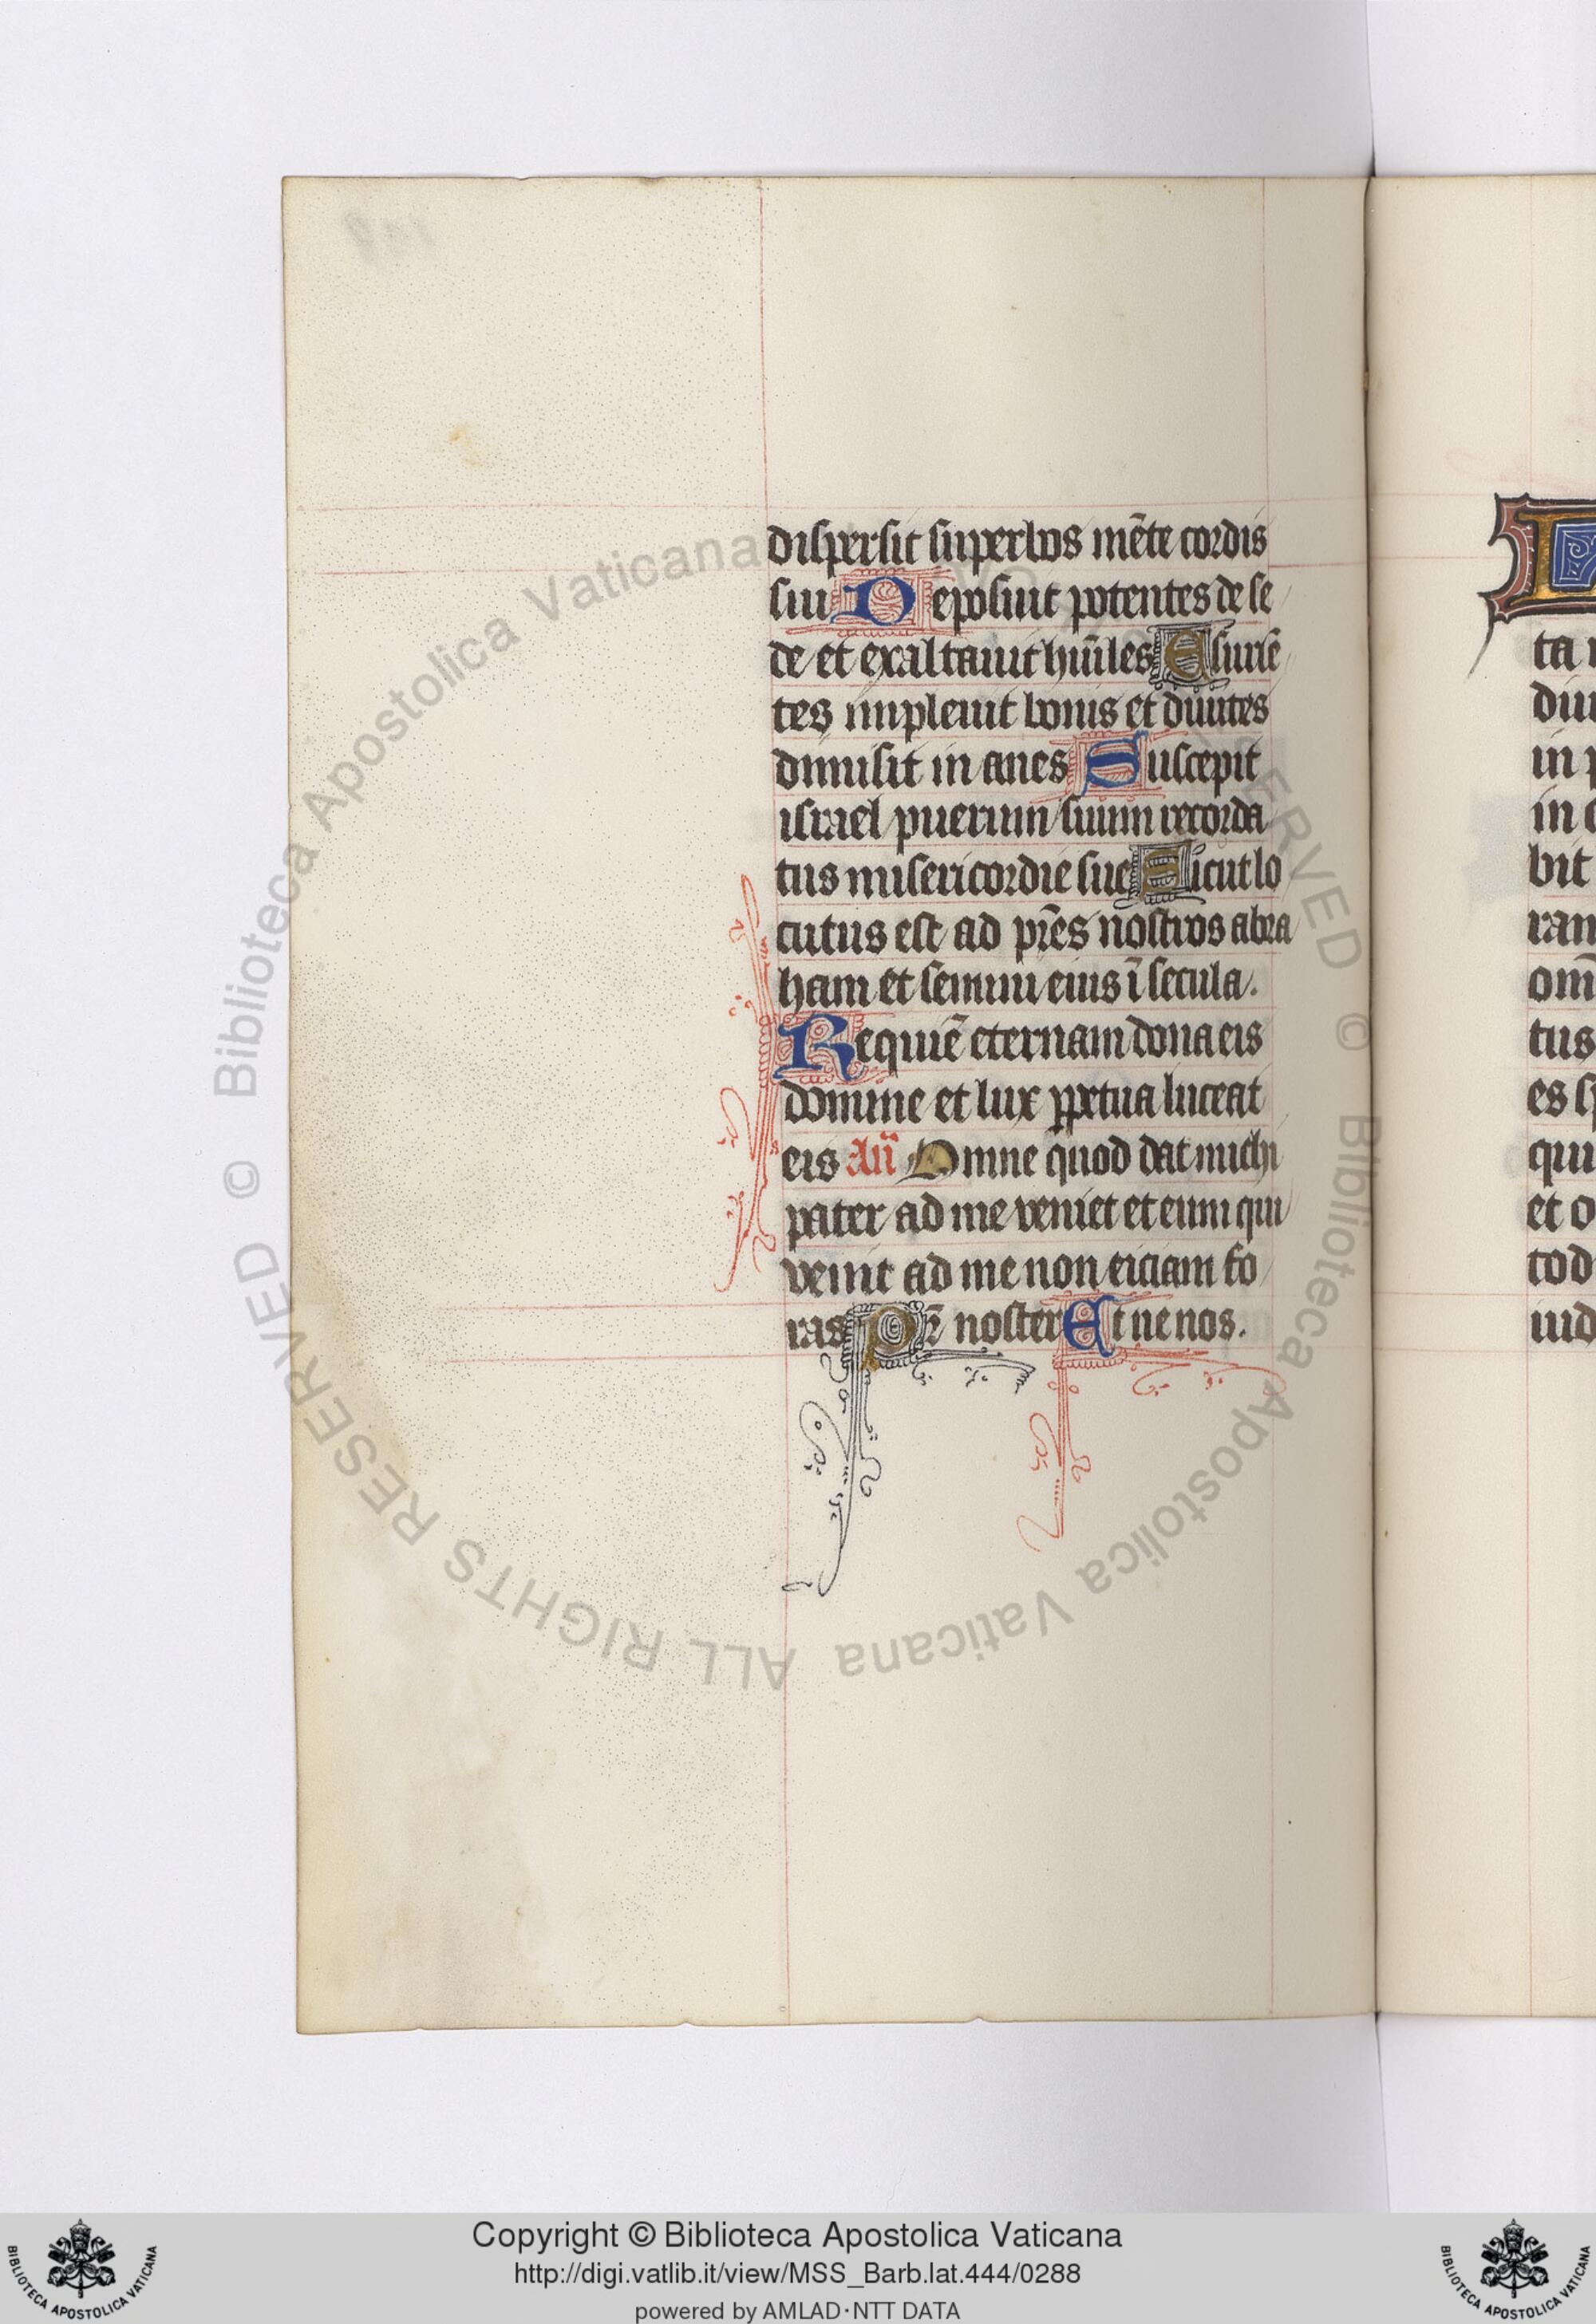 dispersit superbos mēte cordis
sui Deposuit potentes de se
de et exaltauit hūiles Esuriē
tes impleuit bonis et diuites
dimisit in anes Suscepit
israel puerum suum recorda
tus misericordie sue Sicut lo
cutus est ad pr̄es nostros abra
ham et semini eius ī secula.
Requiē eternam dona eis
domine et lux ꝑpetua luceat
eis Añ Omne quod dat michi
pater ad me veniet et eum qui
venit ad me non eiciam fo
ras Pr̄ noster Et ne nos.
ta
diu
in
in
bit
ran
om̄
tus
es
qui
et o
tod
iud
© Biblioteca Apostolica Vaticana ALL RIGHTS RESERVED © Biblioteca Apostolica Vaticana ALL RIGHTS RESERVED
Copyright © Biblioteca Apostolica Vaticana
http://digi.vatlib.it/view/MSS_Barb.lat.444/0288
powered by AMLAD·NTT DATA
BIBLIOTECA APOSTOLICA VATICANA
BIBLIOTECA APOSTOLICA VATICANA